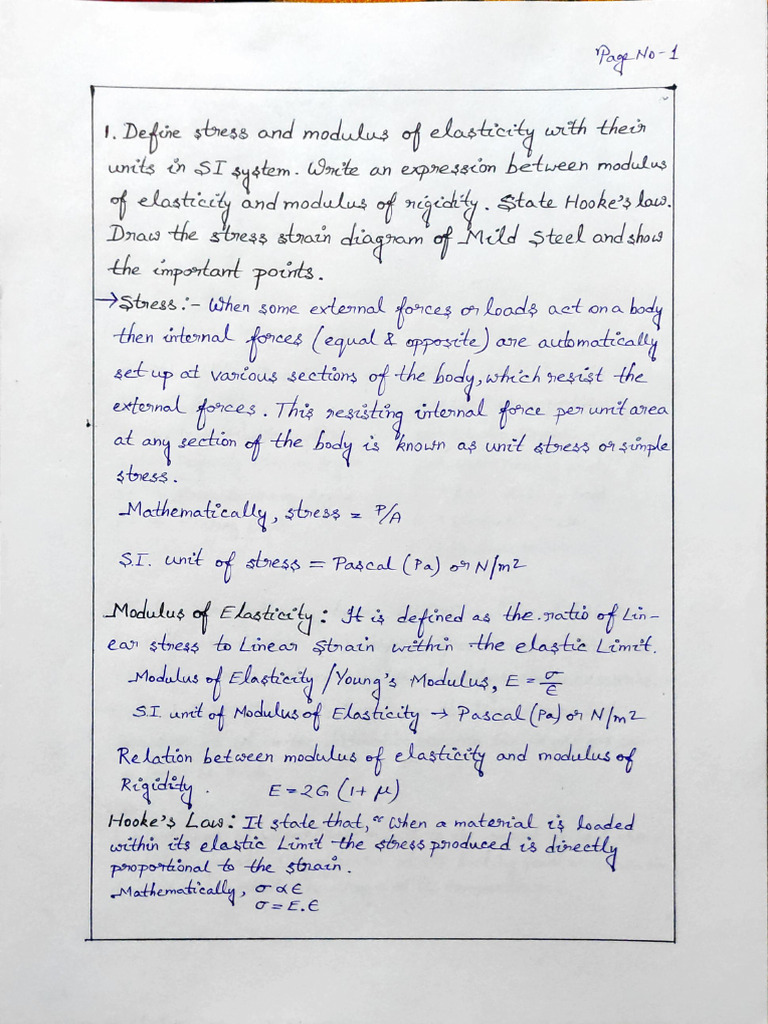 Page No-1
1. Define stress and modulus of elasticity with their
units in SI system. Write an expression between modulus
of elasticity and modulus of rigidity. State Hooke's law.
Draw the stress strain diagram of Mild Steel and show
the important points.
→Stress:- When some external forces or loads act on a body
then internal forces (equal & opposite) are automatically
set up at various sections of the body, which resist the
external forces. This resisting internal force per unit area
at any section of the body is known as unit stress or simple
stress.
Mathematically, stress = P/A
S.I. unit of stress = Pascal (Pa) or N/m2
Modulus of Elasticity: It is defined as the ratio of Lin-
ear stress to Linear Strain within the elastic Limit.
Modulus of Elasticity / Young's Modulus, E = σ/ϵ
S.I. unit of Modulus of Elasticity → Pascal (Pa) or N/m2
Relation between modulus of elasticity and modulus of
Rigidity. E = 2G (1+ μ)
Hooke's Law: It state that, "When a material is loaded
within its elastic Limit the stress produced is directly
proportional to the strain.
Mathematically, σ ∝ ϵ
σ = E.ϵ